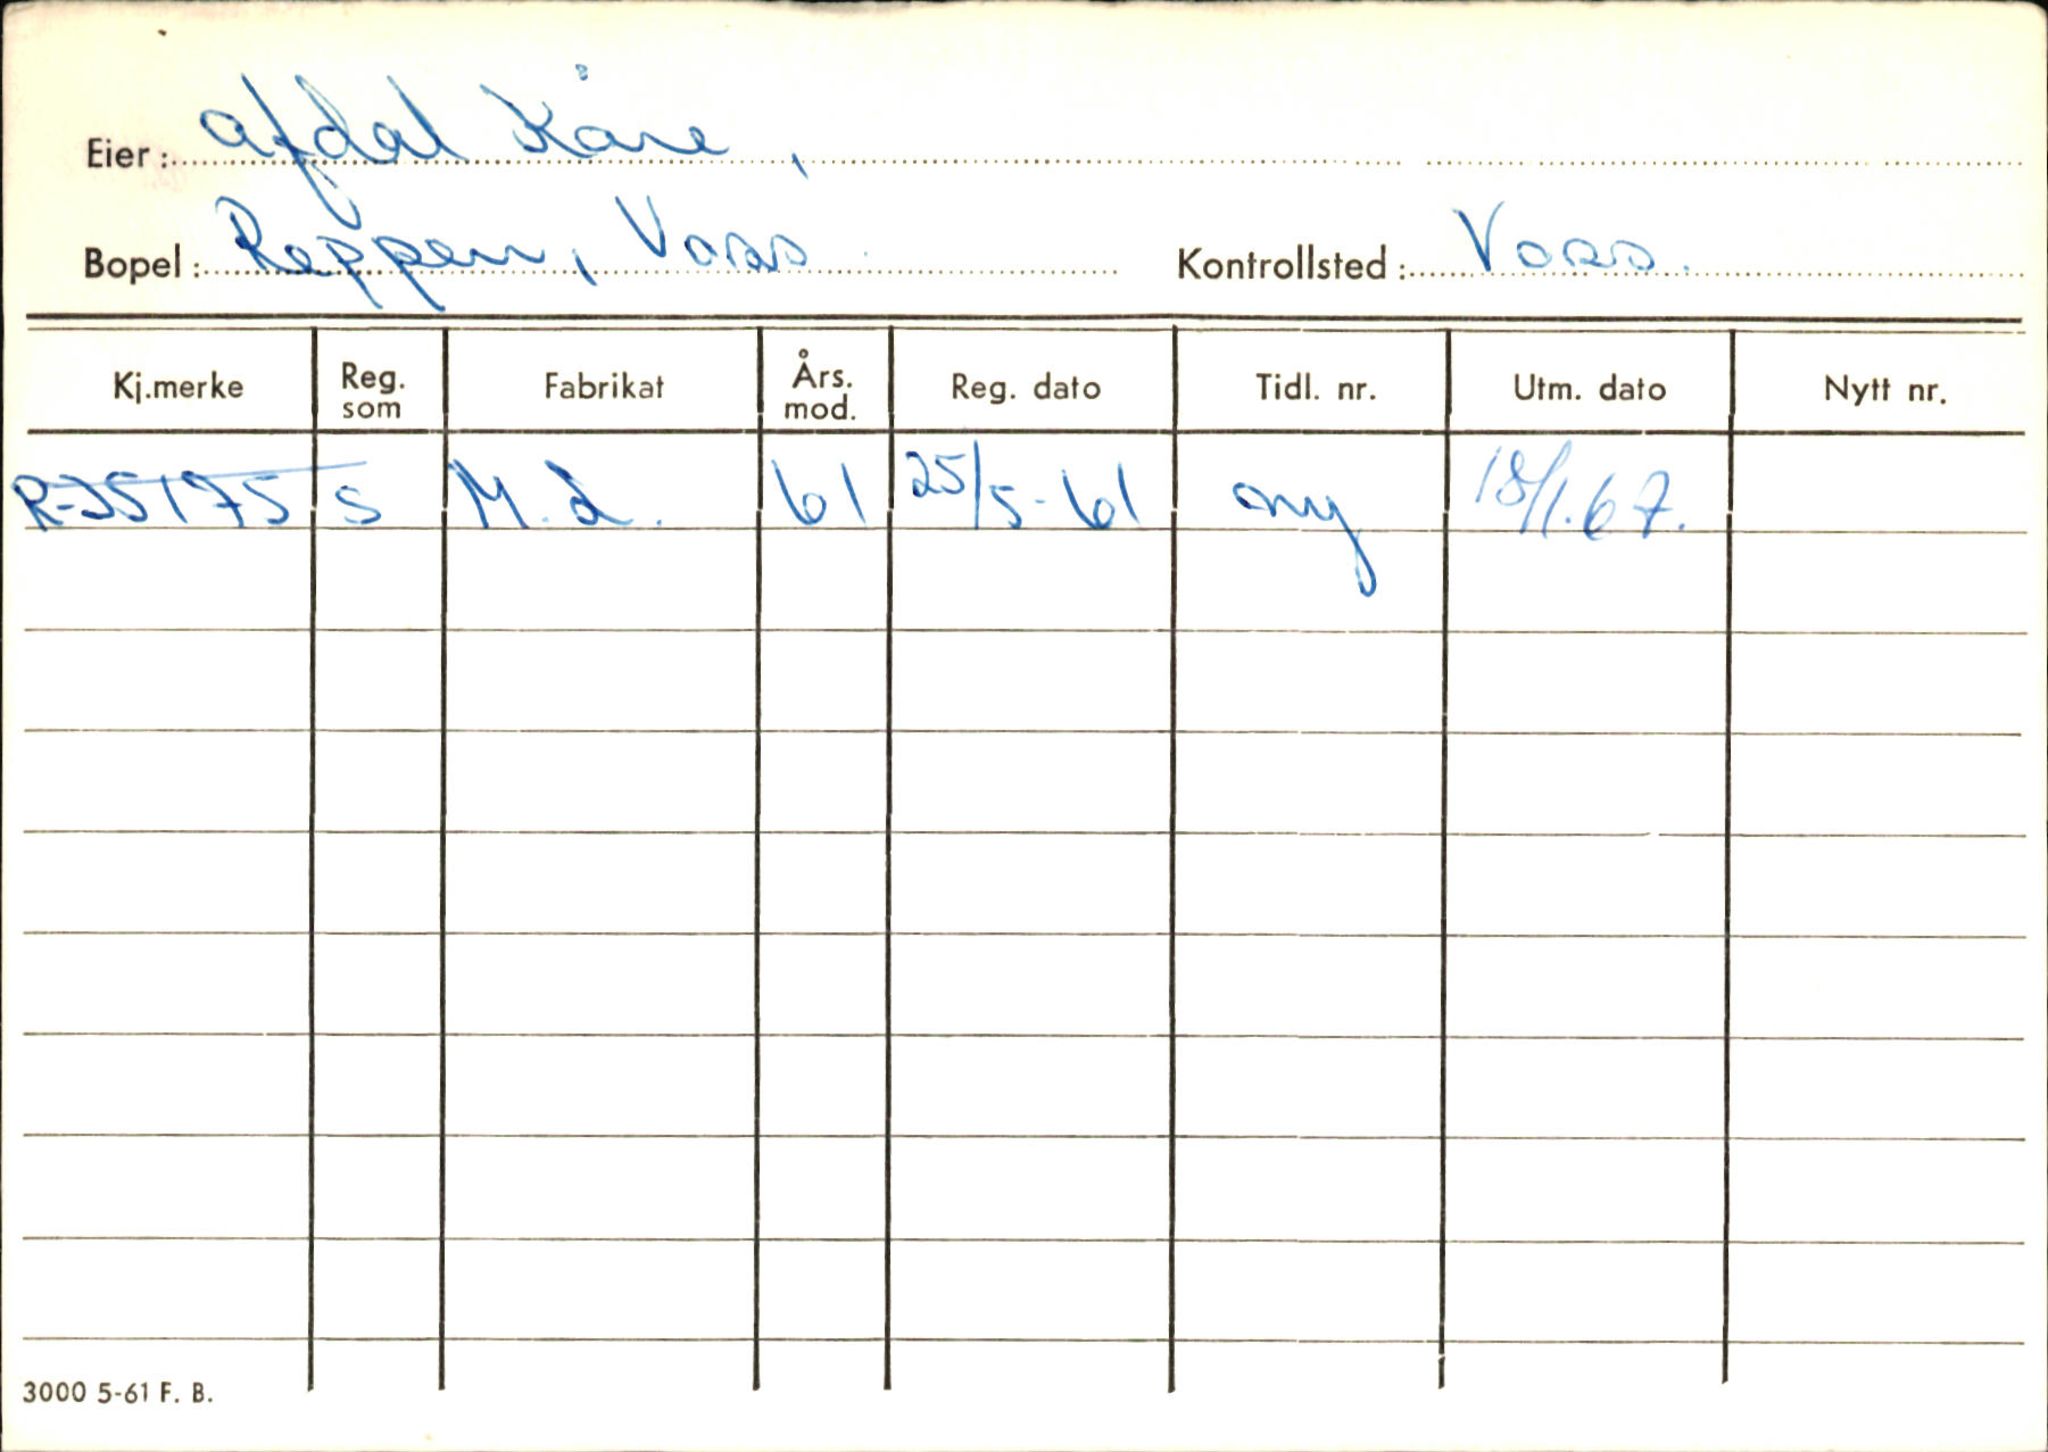 Eier: Afdal Kåre,
Bopel: Reppen, Voss Kontrollsted: Voss.
Kj.merke Reg. som Fabrikat Års. mod. Reg. dato Tidl. nr. Utm. dato Nytt nr.
R-35175 s M.d. 61 25/5-61 ny 18/1.67.
3000 5-61 F. B.